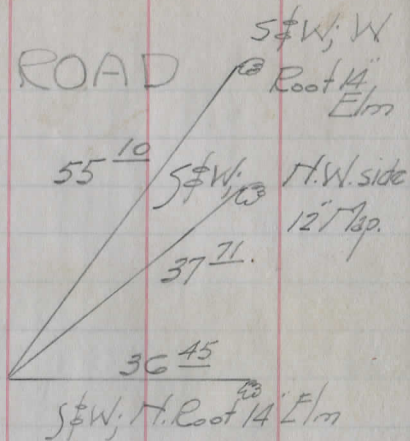 S&W; W.
ROAD
Root 14"
Elm
55 10
S&W; N.W. side
12" Map.
37 71.
36 45
S&W; N. Root 14" Elm